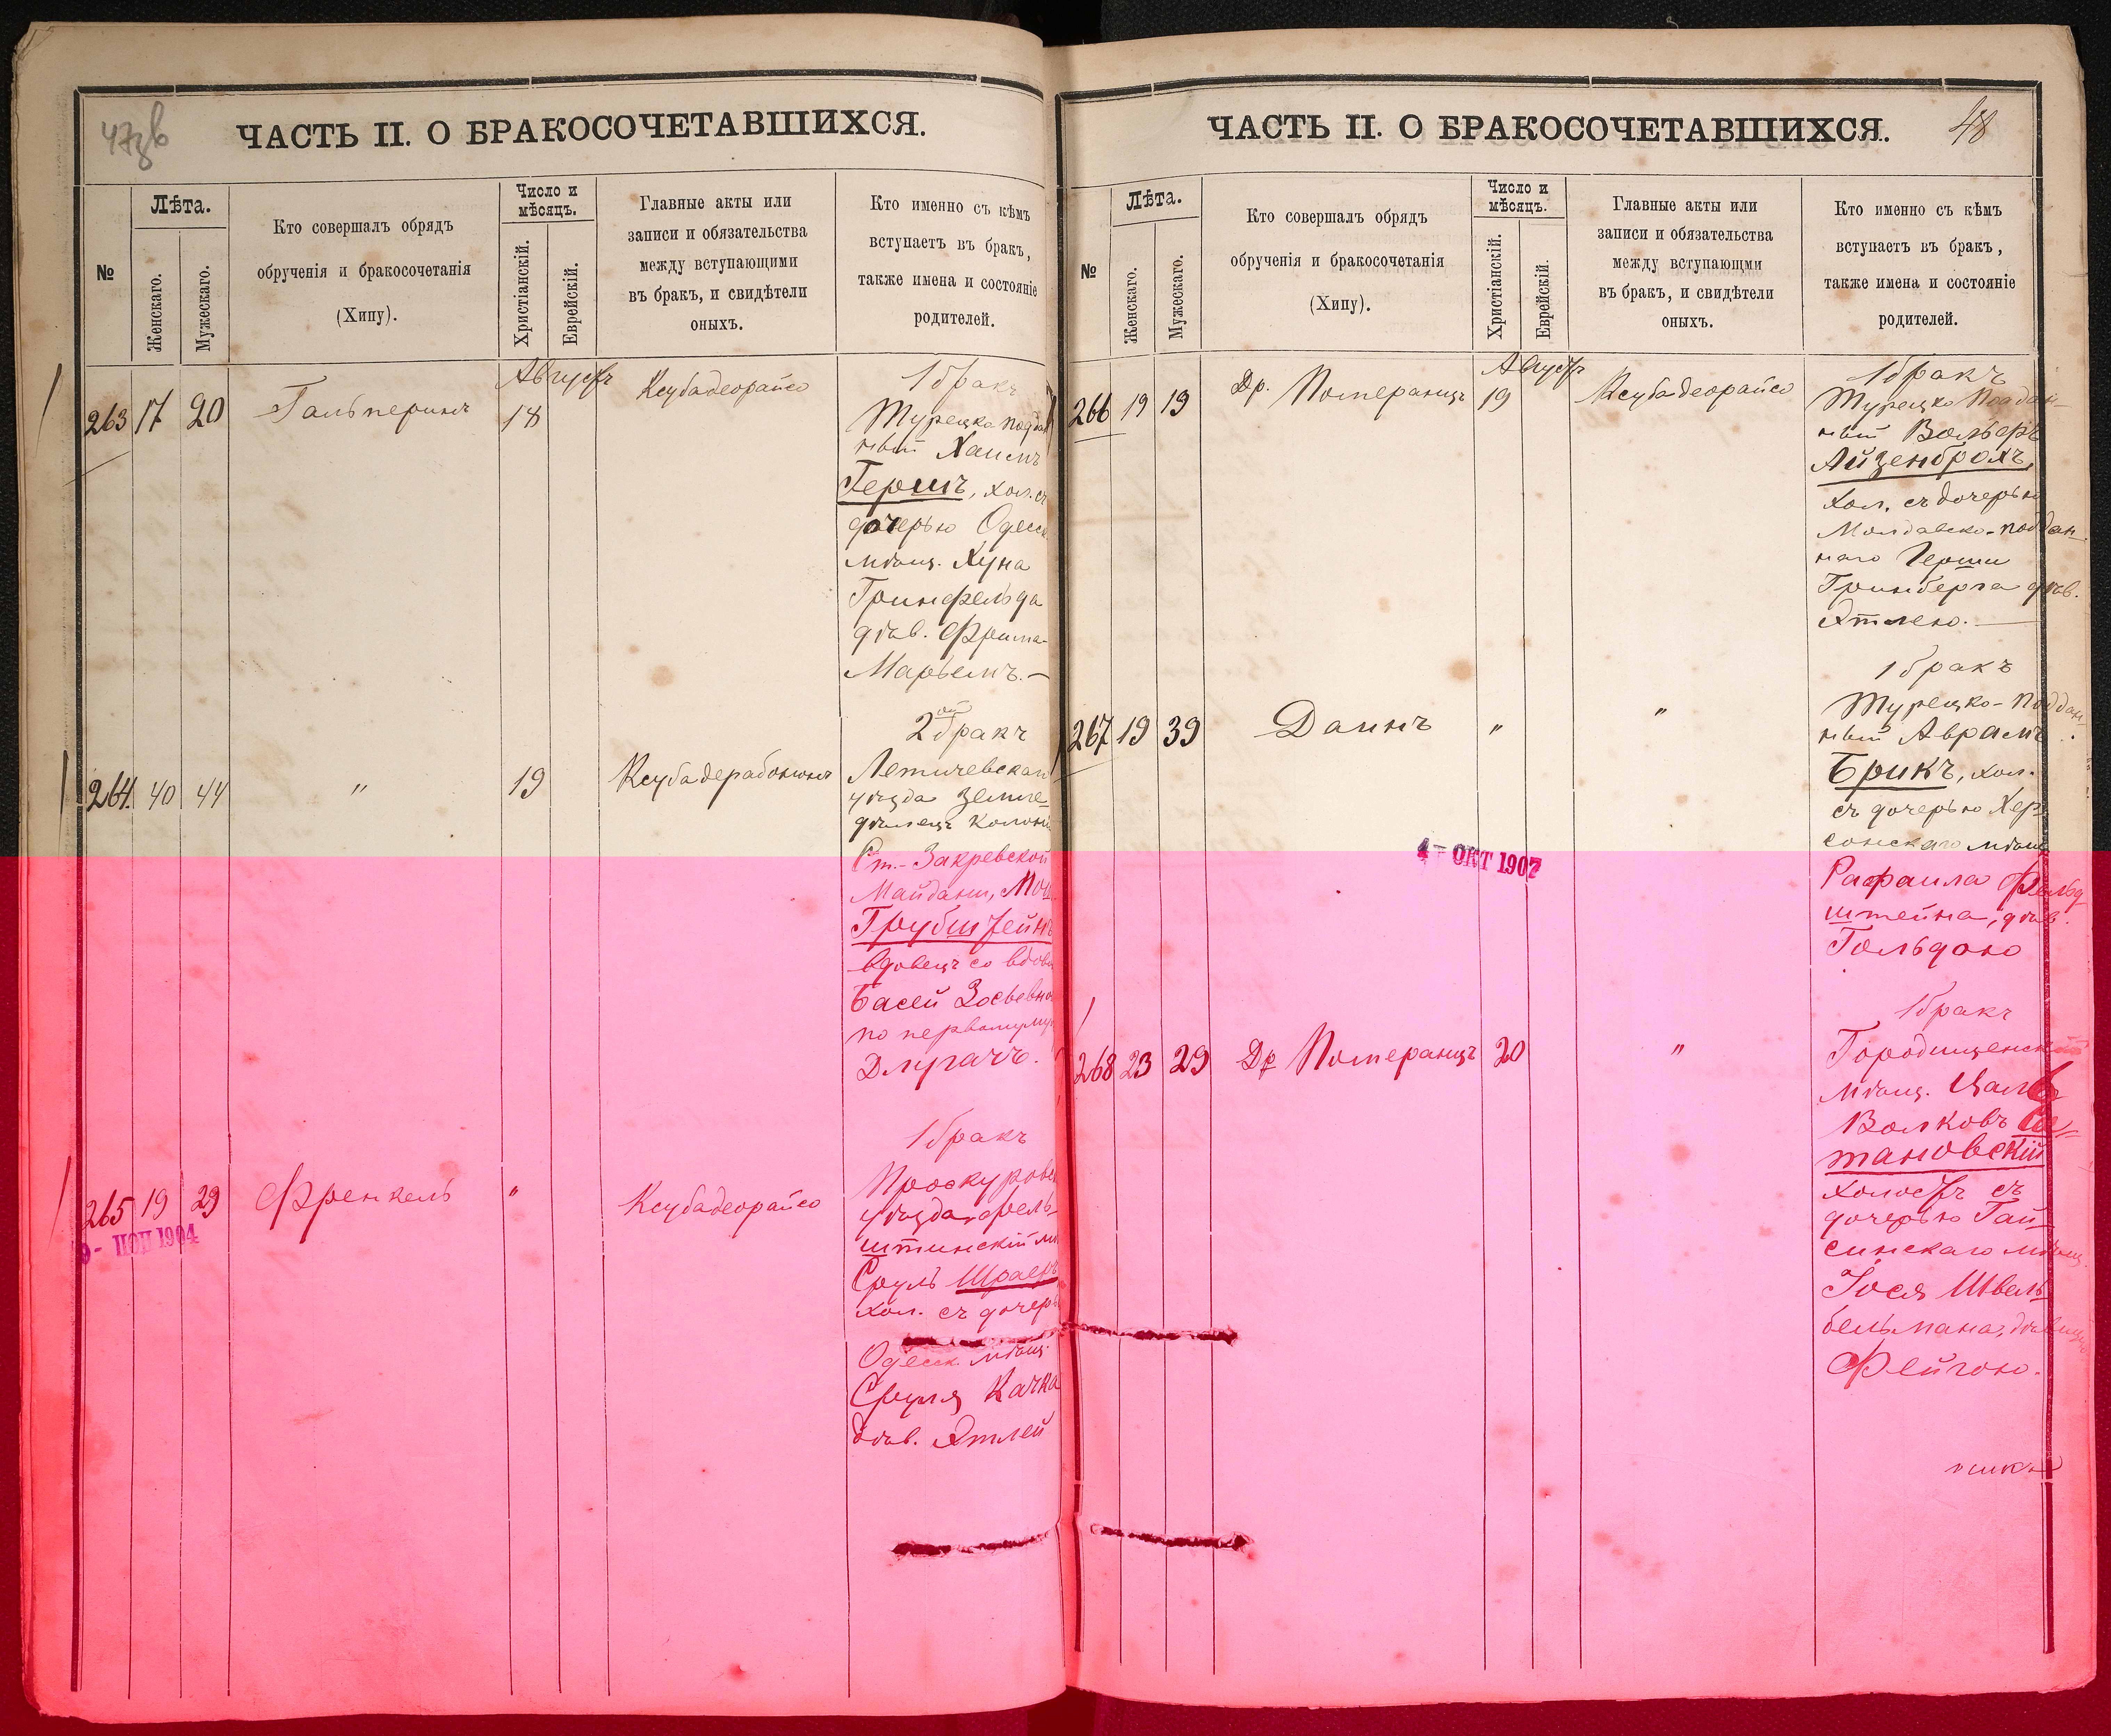 47зв
ЧАСТЬ II. О БРАКОСОЧЕТАВШИХСЯ.
№
Лѣта.
Женскаго.
Мужескаго.
Кто совершалъ обрядъ
обрученія и бракосочетанія
(Хипу).
Число и
мѣсяцъ.
Христіанскій.
Еврейскій.
Главные акты или
записи и обязательства
между вступающими
въ бракъ, и свидѣтели
оныхъ.
Кто именно съ кѣмъ
вступаетъ въ бракъ,
также имена и состояніе
родителей.
263 17 20 Гальперинъ Августъ 18 Ксубадеорайсо
1 бракъ
Турецко поддан
ный Хаимъ
Гершъ, хол. съ
дочерью Одесск
мѣщ. Хуна
Гринфельда
дѣв. Фрима-
Марьемъ.-
264. 40 44 " 19 Ксубадерабононъ
2ой бракъ
Летичевскаго
уѣзда земле-
дѣлецъ колоніи
Ст.-Закревской
Майданъ, Мош
Грубштейнъ
вдовецъ со вдовой
Басей Зосьевной
по первому му
Длугачъ.
265 19 29 Френкель " Ксубадеорайсо
9- НОЯ 1904
1 бракъ
Проскуровск
уѣзда, фель-
штинскій мѣ
Сруль Шраеръ
хол. съ дочерь
Одесск. мѣщ.
Сруля Качка
дѣв. Этлей
48
ЧАСТЬ II. О БРАКОСОЧЕТАВШИХСЯ.
№
Лѣта.
Женскаго.
Мужескаго.
Кто совершалъ обрядъ
обрученія и бракосочетанія
(Хипу).
Число и
мѣсяцъ.
Христіанскій.
Еврейскій.
Главные акты или
записи и обязательства
между вступающми
въ бракъ, и свидѣтели
оныхъ.
Кто именно съ кѣмъ
вступаетъ въ бракъ,
также имена и состояніе
родителей.
266 19 19 Др. Померанцъ Августъ 19 Ксубадеорайсо
1 бракъ
Турецко Поддан-
ный Вольфъ
Айзенброхъ,
хол. съ дочерью
Молдавско-поддан-
наго Герши
Гринберга дѣв.
Этлею.-
267 19 39 Даинъ " "
1 бракъ
Турецко-поддан-
ный Аврамъ
Брикъ, хол.
съ дочерью Хер-
сонскаго мѣщ
Рафаила Фельд-
штейна, дѣв.
Гольдою
4- ОКТ 1907
268 23 29 Др Померанцъ 20 "
1 бракъ
Городищенскій
мѣщ. Цаль
Волковъ
тановскій
холостъ съ
дочерью Гай-
синскаго мѣщ.
Іося Швель-
бельмана, дѣвицею
Фейгою.